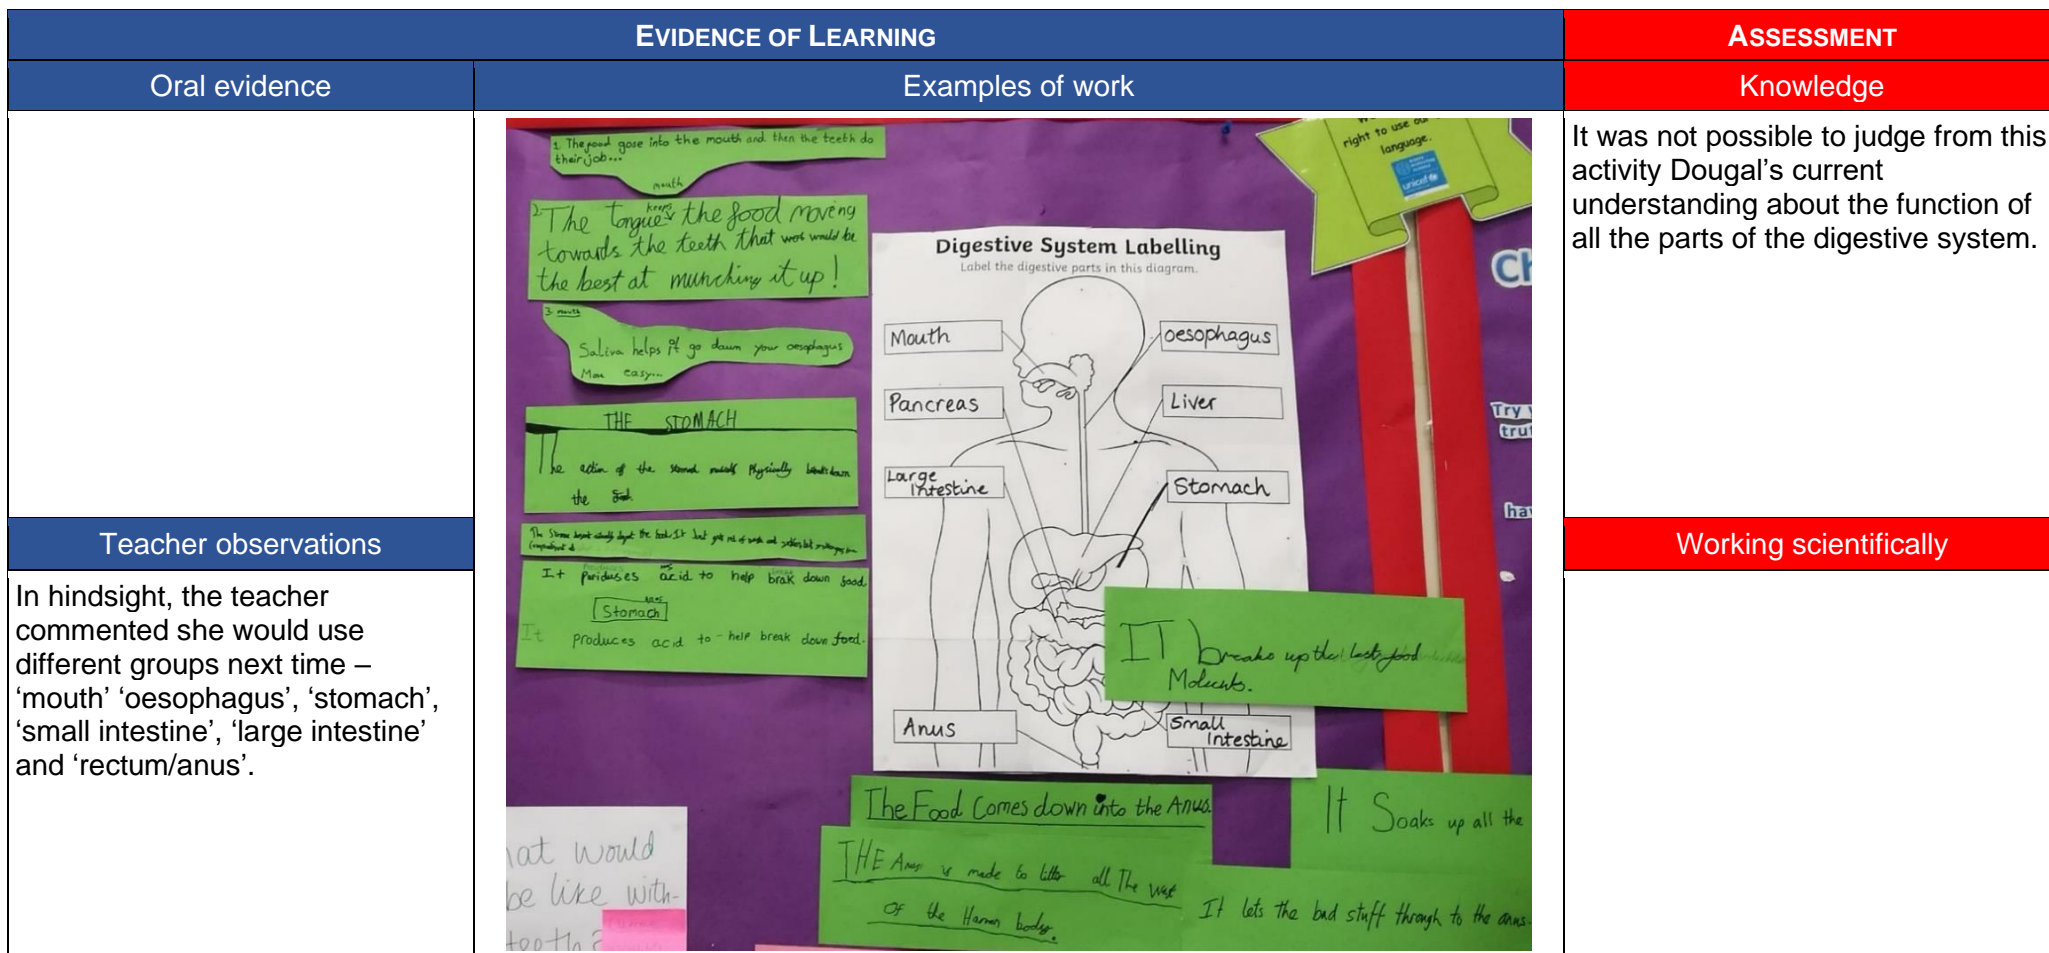 EVIDENCE OF LEARNING
ASSESSMENT
Oral evidence
Examples of work
Knowledge
It was not possible to judge from this
activity Dougal’s current
understanding about the function of
all the parts of the digestive system.
Teacher observations
In hindsight, the teacher
commented she would use
different groups next time –
‘mouth’ ‘oesophagus’, ‘stomach’,
‘small intestine’, ‘large intestine’
and ‘rectum/anus’.
Working scientifically
1. The food gose into the mouth and then the teeth do
their job...
mouth
2 The tongue keeps the food moving
towards the teeth that would be
the best at munching it up!
3. mouth
Saliva helps it go down your oesophagus
More easy...
THE STOMACH
The action of the physically breaks down
the
The
It acid to help brak down food
Stomach
It produces acid to - help break down food.
right to use our
language.
unicef
Digestive System Labelling
Label the digestive parts in this diagram.
Mouth
oesophagus
Pancreas
Liver
Large
Intestine
Stomach
Anus
Small
Intestine
IT breaks up the last food
The Food Comes down into the Anus.
THE Anus is made to all The
of the Haman body.
It Soaks up all the
It lets the bad stuff through to the anus.
would
be like with-
teeth
Try